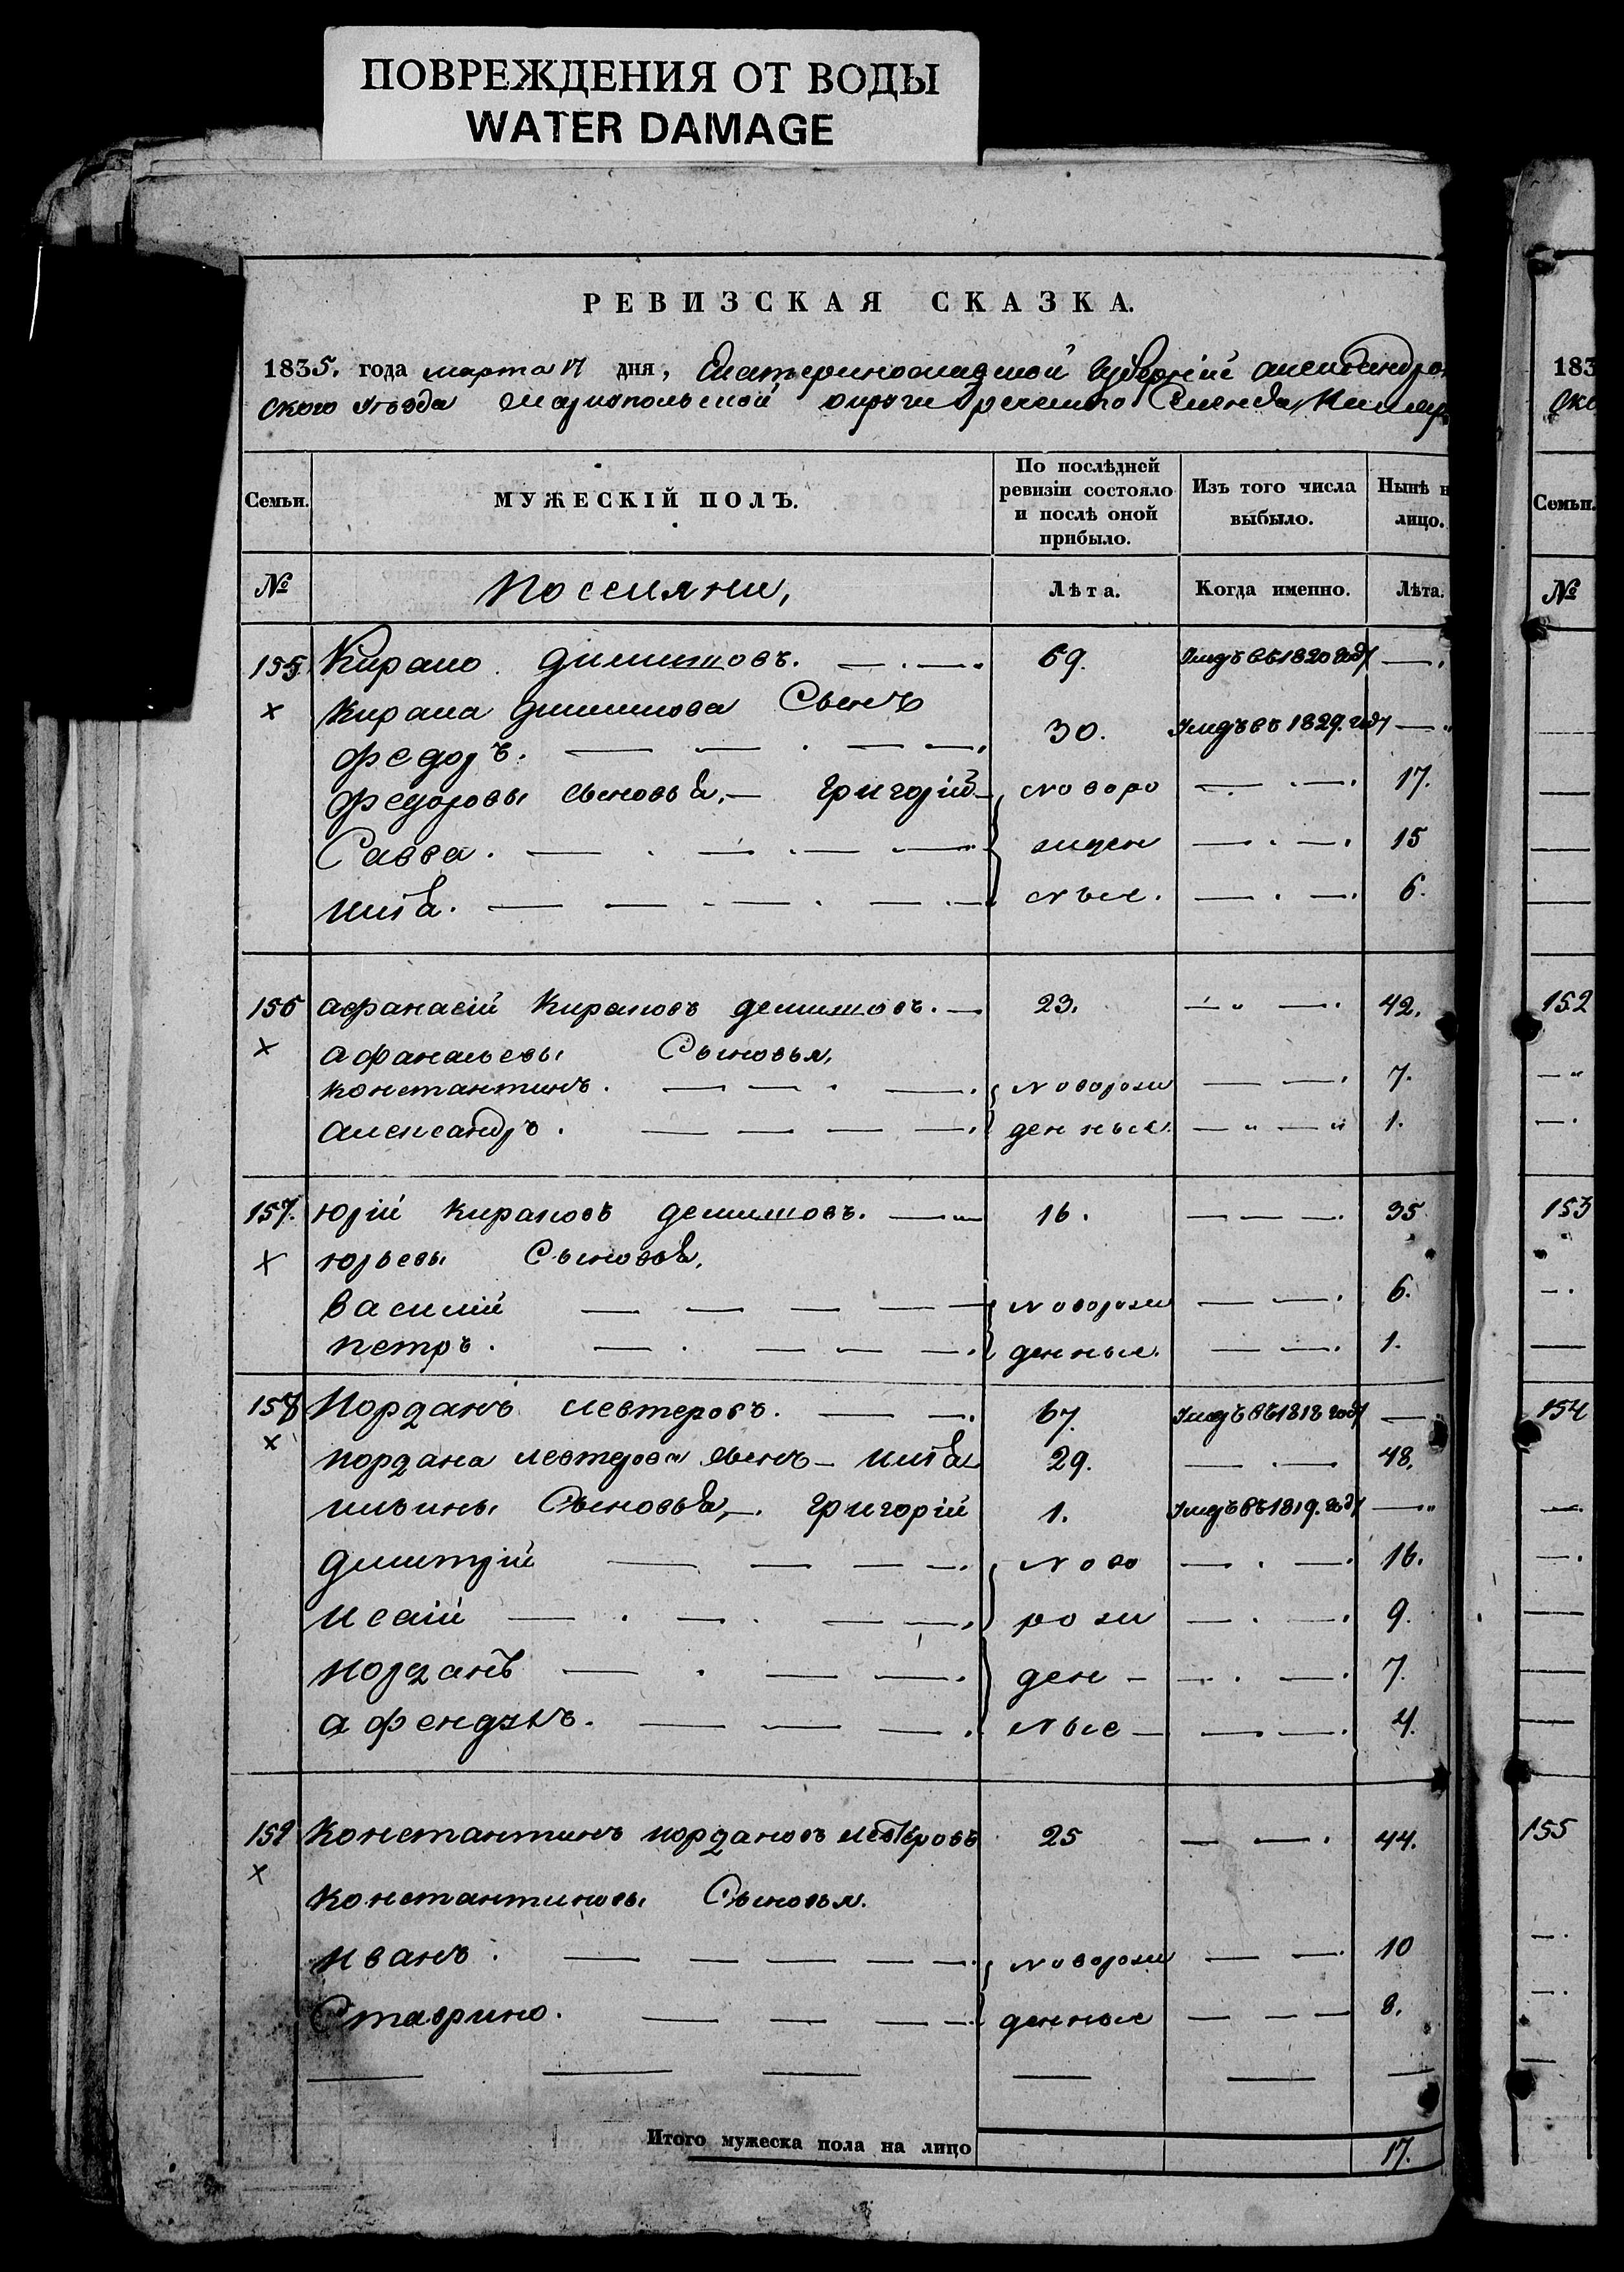 ПОВРЕЖДЕНИЯ ОТ ВОДЫ
WATER DAMAGE
РЕВИЗСКАЯ СКАЗКА.
1835. года марта 17 дня, Екатеринославской Губерніи александров
ского уѣзда Мариупольской округи Греческаго
Семьи.
МУЖЕСКІЙ ПОЛЪ.
По послѣдней ревизіи состояло и послѣ оной прибыло.
Изъ того числа выбыло.
Нынѣ н лицо.
№
Поселяни,
Лѣта.
Когда именно.
Лѣта.
155 Кирако 69. въ 1820 году —
× Сынъ
федоръ. 30. въ 1829. году —
федоровы сыновья, — Григорій — новоро — 17.
Савва. — жден — 15
илья. — ные. — 6.
156 афанасій Кираковъ — 23. — 42.
× афанасьевы Сыновья,
константинъ. — новорож — 7.
александръ. — денные. — 1.
157. юрій Кираковъ — 16. — 35
× юрьевы Сыновья,
василій — новорож — 6.
петръ. — денные. — 1.
158 Иорданъ левтеровъ. — 67. въ 1818 году —
× иордана левтерова сынъ — илья 29. — 48.
ильины Сыновья, — Григорій 1. въ 1819. году —
дмитрій — ново — 16.
исаій — рож — 9.
иорданъ — ден — 7.
— ные — 4.
159 Константинъ иордановъ левтеровъ 25 — 44.
×
константиновы Сыновья.
иванъ. — новорож — 10
Ставрино. — денные — 8.
Итого мужеска пола на лицо 17.
183
ско
Семьи.
№
152
153
154
155